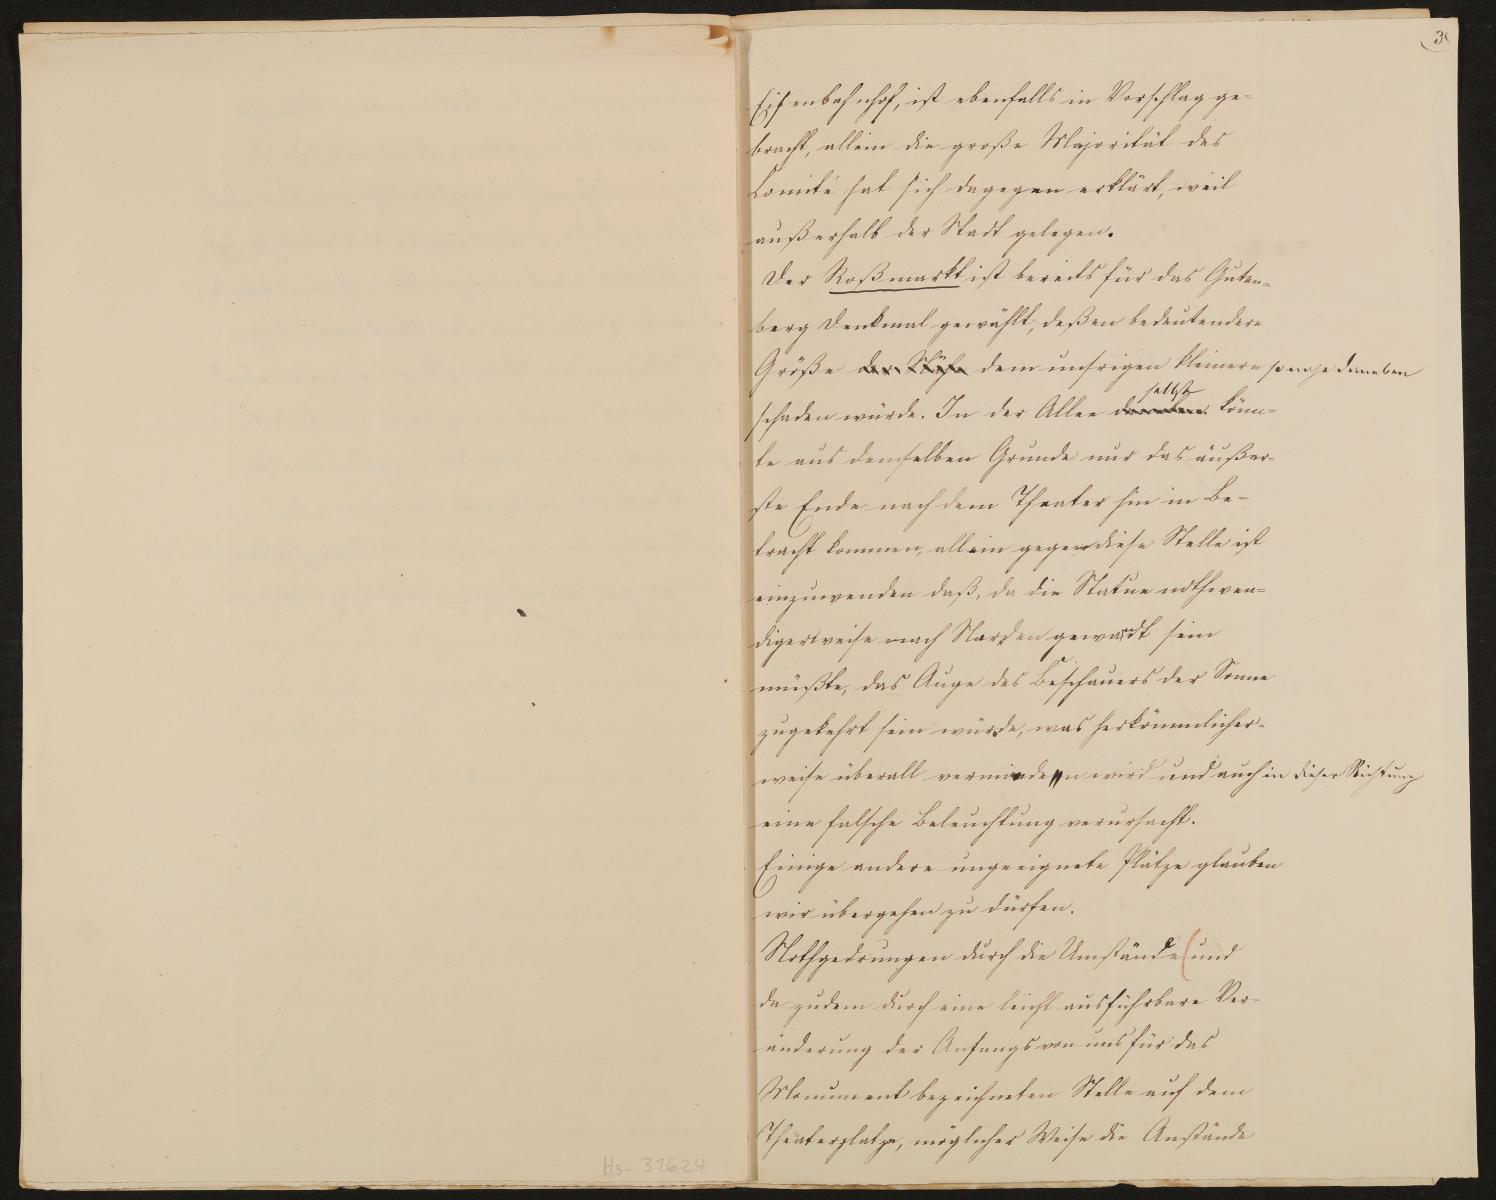 3
Eisenbahnhof, ist ebenfalls in Vorschlag ge-
bracht, allein die große Majorität des
Comité hat sich dagegen erklärt, weil
außerhalb der Stadt gelegen.
Der Roßmarkt ist bereits für das Guten-
berg Denkmal gewählt, deßen bedeutendere
Größe der Nähe dem unsrigen kleinern so nahe daneben
selbst
schaden würde. In der Allee daneben könn-
te aus demselben Grunde nur das äußer-
ste Ende nach dem Theater hin in Be-
tracht kommen, allein gegen diese Stelle ist
einzuwenden daß, da die Statue nothwen-
digerweise nach Norden gewandt sein
müßte, das Auge des Beschauers der Sonne
zugekehrt sein würde, was herkömmlicher-
weise überall vermieden wird und auch in dieser Richtung
eine falsche Beleuchtung verursacht.
Einige andere ungeeignete Plätze glauben
wir übergehen zu dürfen.
Nothgedrungen durch die Umstände (und
da zudem durch eine leicht ausführbare Ver-
änderung der Anfangs von uns für das
Monument bezeichneten Stelle auf dem
Theaterplatze, möglicher Weise die Anstände
Hs-31624